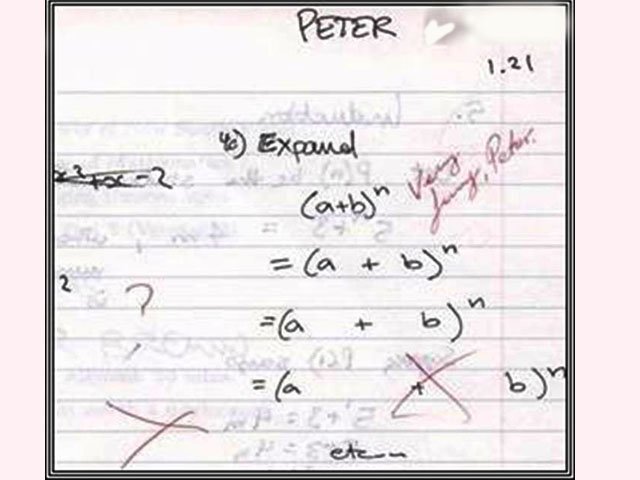 PETER
1.21
4c) Expand
x²+x-2
Very funny, Peter.
(a+b)ⁿ
= (a + b)ⁿ
2
?
=(a + b)ⁿ
=(a + b)ⁿ
etc...